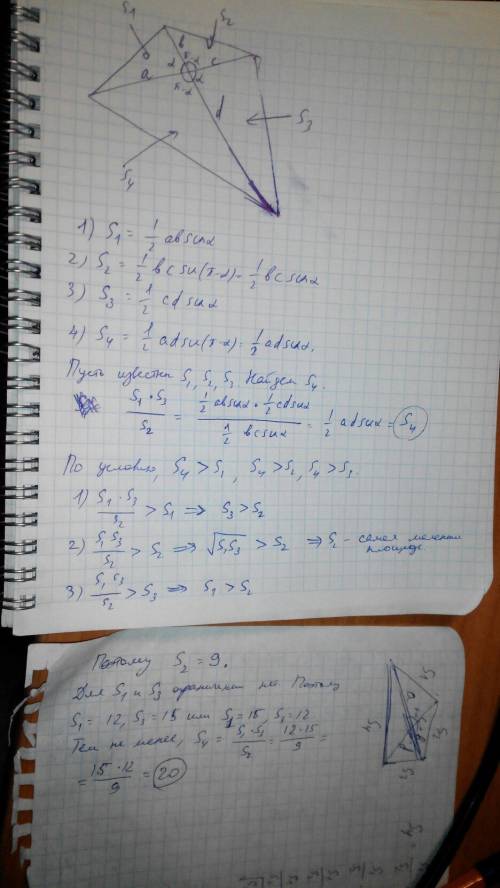 S₁ S₂
b π-α
α α c
a π-α
d S₃
S₄
1) S₁ = 1/2 ab sinα
2) S₂ = 1/2 bc sin(π-α) = 1/2 bc sinα
3) S₃ = 1/2 cd sinα
4) S₄ = 1/2 ad sin(π-α) = 1/2 ad sinα.
Пусть известны S₁, S₂, S₃. Найдем S₄.
S₁·S₃/S₂ = (1/2 ab sinα · 1/2 cd sinα)/(1/2 bc sinα) = 1/2 ad sinα = S₄
По условию, S₄ > S₁, S₄ > S₂, S₄ > S₃.
1) S₁·S₃/S₂ > S₁ ⇒ S₃ > S₂
2) S₁S₃/S₂ > S₂ ⇒ √S₁S₃ > S₂ ⇒ S₂ - самая меньшая площадь
3) S₁S₃/S₂ > S₃ ⇒ S₁ > S₂
Поэтому S₂ = 9.
Для S₁ и S₃ ограничений нет. Поэтому
S₁ = 12, S₃ = 15 или S₁ = 15, S₃ = 12
Тем не менее, S₄ = S₁·S₃/S₂ = 12·15/9 =
= 15·12/9 = 20